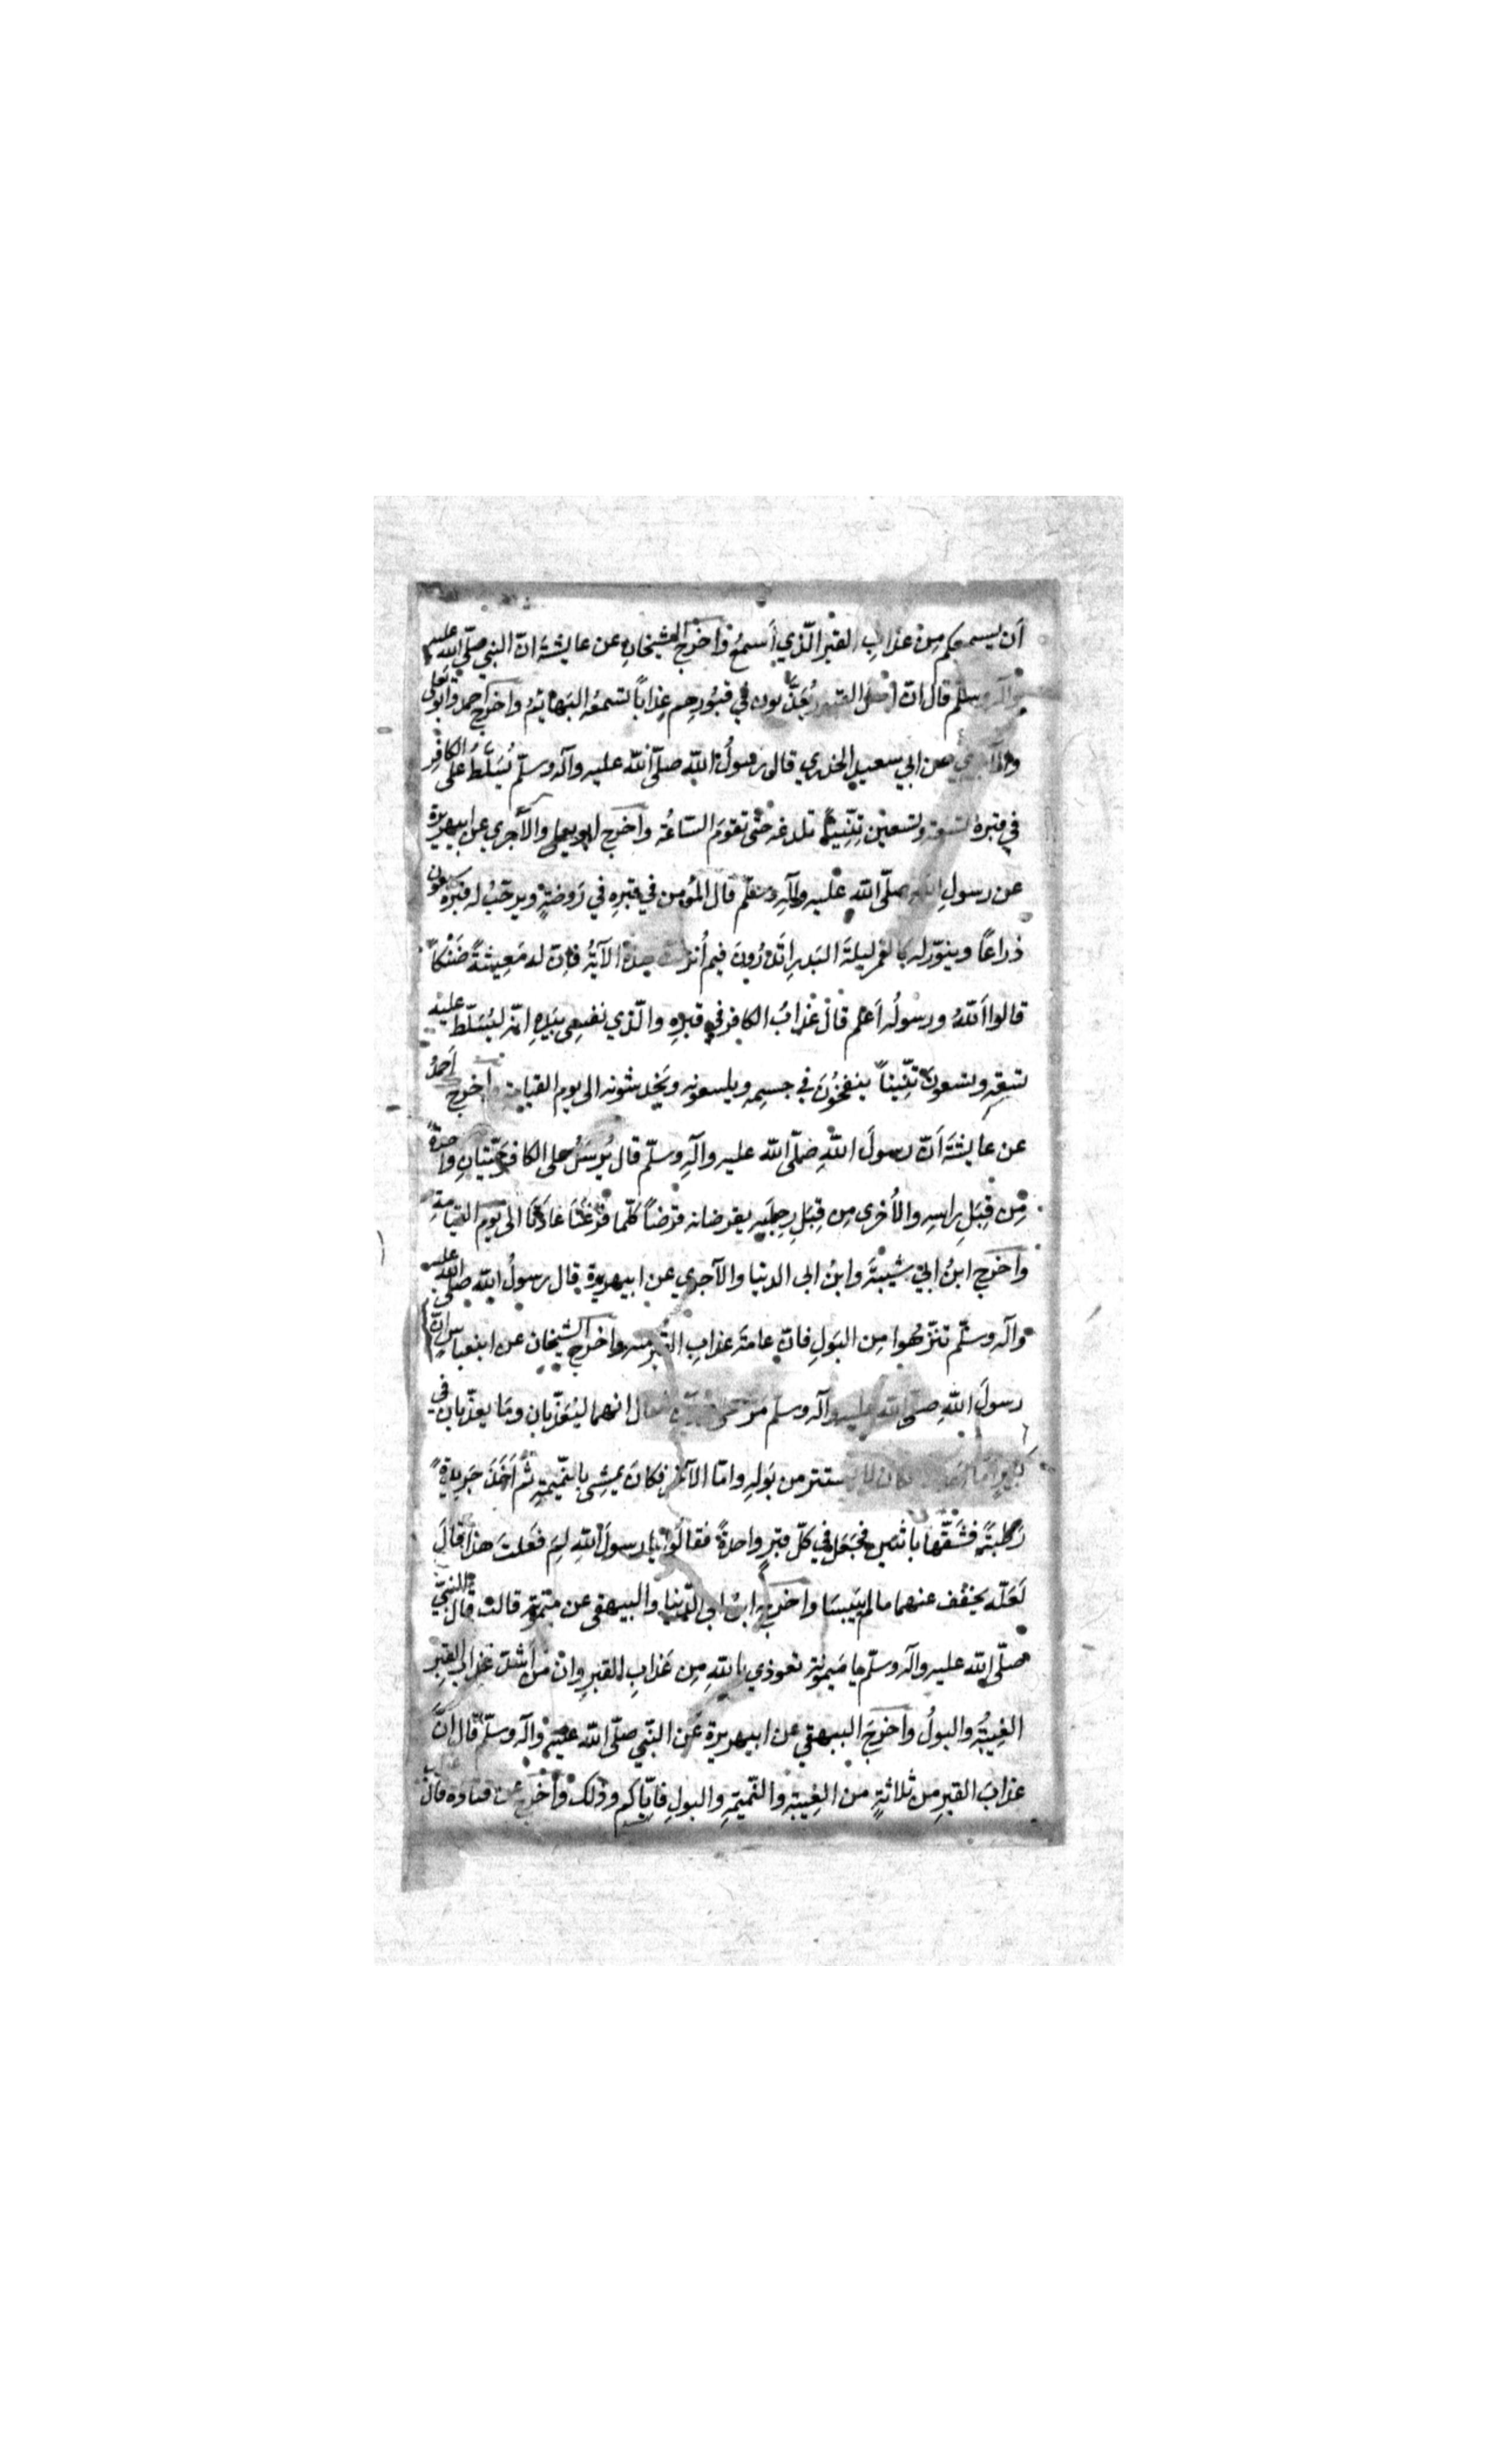 أن يسمعكم من عذاب القبر الّذي أسمع واخرج الشيخان عن عايشة انّ النبي صلّى الله عليه
وآله وسلّم قال انّ اهل القبور يُعذّبون في قبُورِهم عذاباً تسمعُه البَهائمُ واخرج احمد وابو يعلى
والآجري عن ابي سعيد الخدري قال رسُولُ الله صلّى الله عليه وآله وسلّم يُسَلّطُ على الكافِر
في قبره تسعة وتسعين تِنّيناً تلدغه حتّى تقومَ السّاعُة واخرج ابو يعلى والآجري عن ابيهريرة
عن رسولِ الله صلّى الله عليه وآلهِ وسلّم قال المُؤمن في قبرِه في رَوضةٍ ويرحّبُ له قبرُه سبعون
ذراعاً وينوّر له كالقمر ليلةَ البَدرِ اتَدرُونَ فيم أُنزلت هذه الآيَةُ فانّ له مَعِيشةً ضَنْكاً
قالوا اَللهُ ورسولُه اَعلم قال عَذابُ الكافر في قبرِه والّذي نفسِي بيَدِه انّه ليُسَلّط عليه
تسعة وتسعون تِنّيناً ينفخُونَ في جسمِه ويلسعونه ويَخدشونه الى يوم القيامة واخرج اَحمدُ
عن عايشةَ اَنّ رسولَ اللهِ صلّى الله عليه وآلهِ وسلّم قال يُرسَلُ على الكافر حَيّتانِ واحدةً
مِن قِبَلِ راسِه والأُخرى مِن قِبَلِ رِجلَيه يقرضانه قرْضاً كُلّما فرَغَتَا عَادَتَا الى يَوم القيامةِ
واخرج ابنُ ابي شيبَةَ وابنُ ابى الدنيا والآجري عن ابيهريرة قال رسولُ الله صلى الله عليه
وآله وسلّم تنزّهُوا مِن البَولِ فانّ عامّة عذابِ القبر منه واخرج الشيخان عن ابنعباسٍ انّ
رسولَ اللهِ صلّى الله عليه وآله وسلّم مَرّ على قبرَين فقال انهما ليُعَذّبان ومَا يعذّبان في
كبيرٍ امّا احدهما فكان لا يستتر من بَولِه وامّا الآخر فكانَ يمشِى بالنّميمةِ ثُم اَخَذَ جَرِيدةً
رَطبةً فشقّها باثنين فجَعَل في كلّ قبرٍ واحدةً فقالُوا يا رسولَ اللهِ لِمَ فَعَلتَ هذا قالَ
لَعَلّه يخفّف عنهما ما لم ييبسَا واخرج ابنُ ابي الدّنيا والبيهقى عن ميمونة قالت قال النبيّ
صلّى الله عليه وآله وسلّم يا مَيمونَة تعوذي باللهِ مِن عَذابِ القبرِ وانّ مِن اَشدّ عَذابِ القبرِ
الغِيبَةُ والبولُ واخرجَ البيهقي عن ابيهريرة عَن النّبي صلّى الله عليه وآله وسلّم قال انّ
عذابَ القبرِ مِن ثلاثةٍ من الغِيبة والنّميمةِ والبولِ فايّاكم وذلك واخرج عن قتاده قال